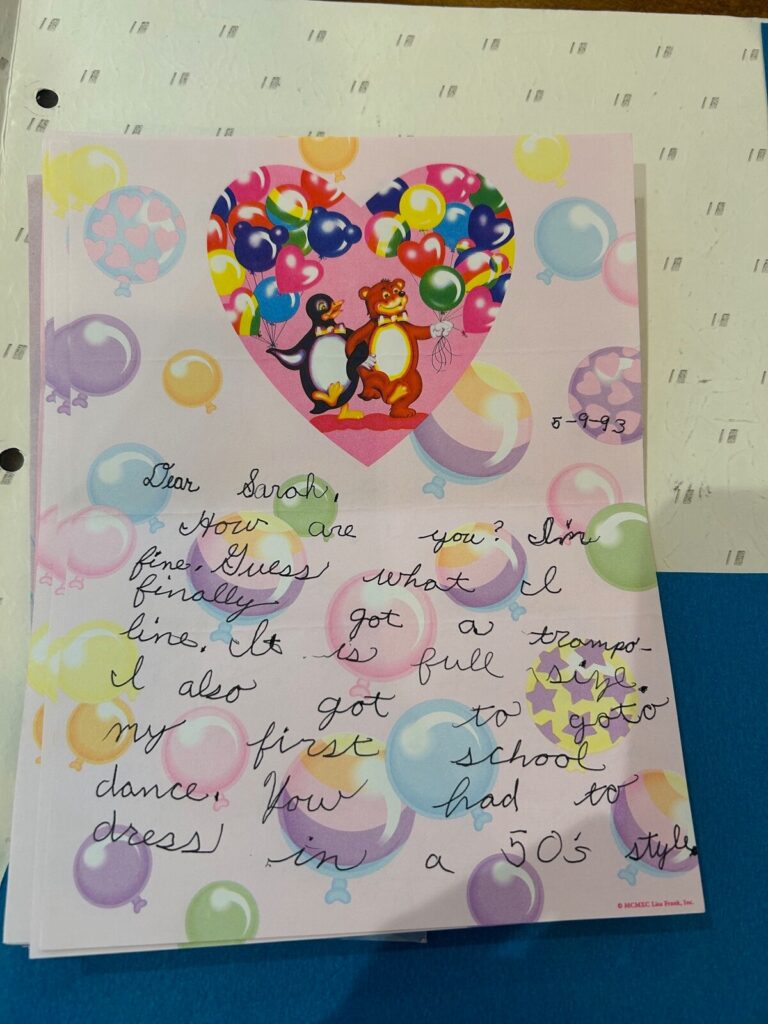 5-9-93
Dear Sarah,
How are you? I'm
fine. Guess what I
finally got a trampo-
line. It is full size.
I also got to goto
my first school
dance. You had to
dress in a 50's style.
© MCMXC Lisa Frank, Inc.